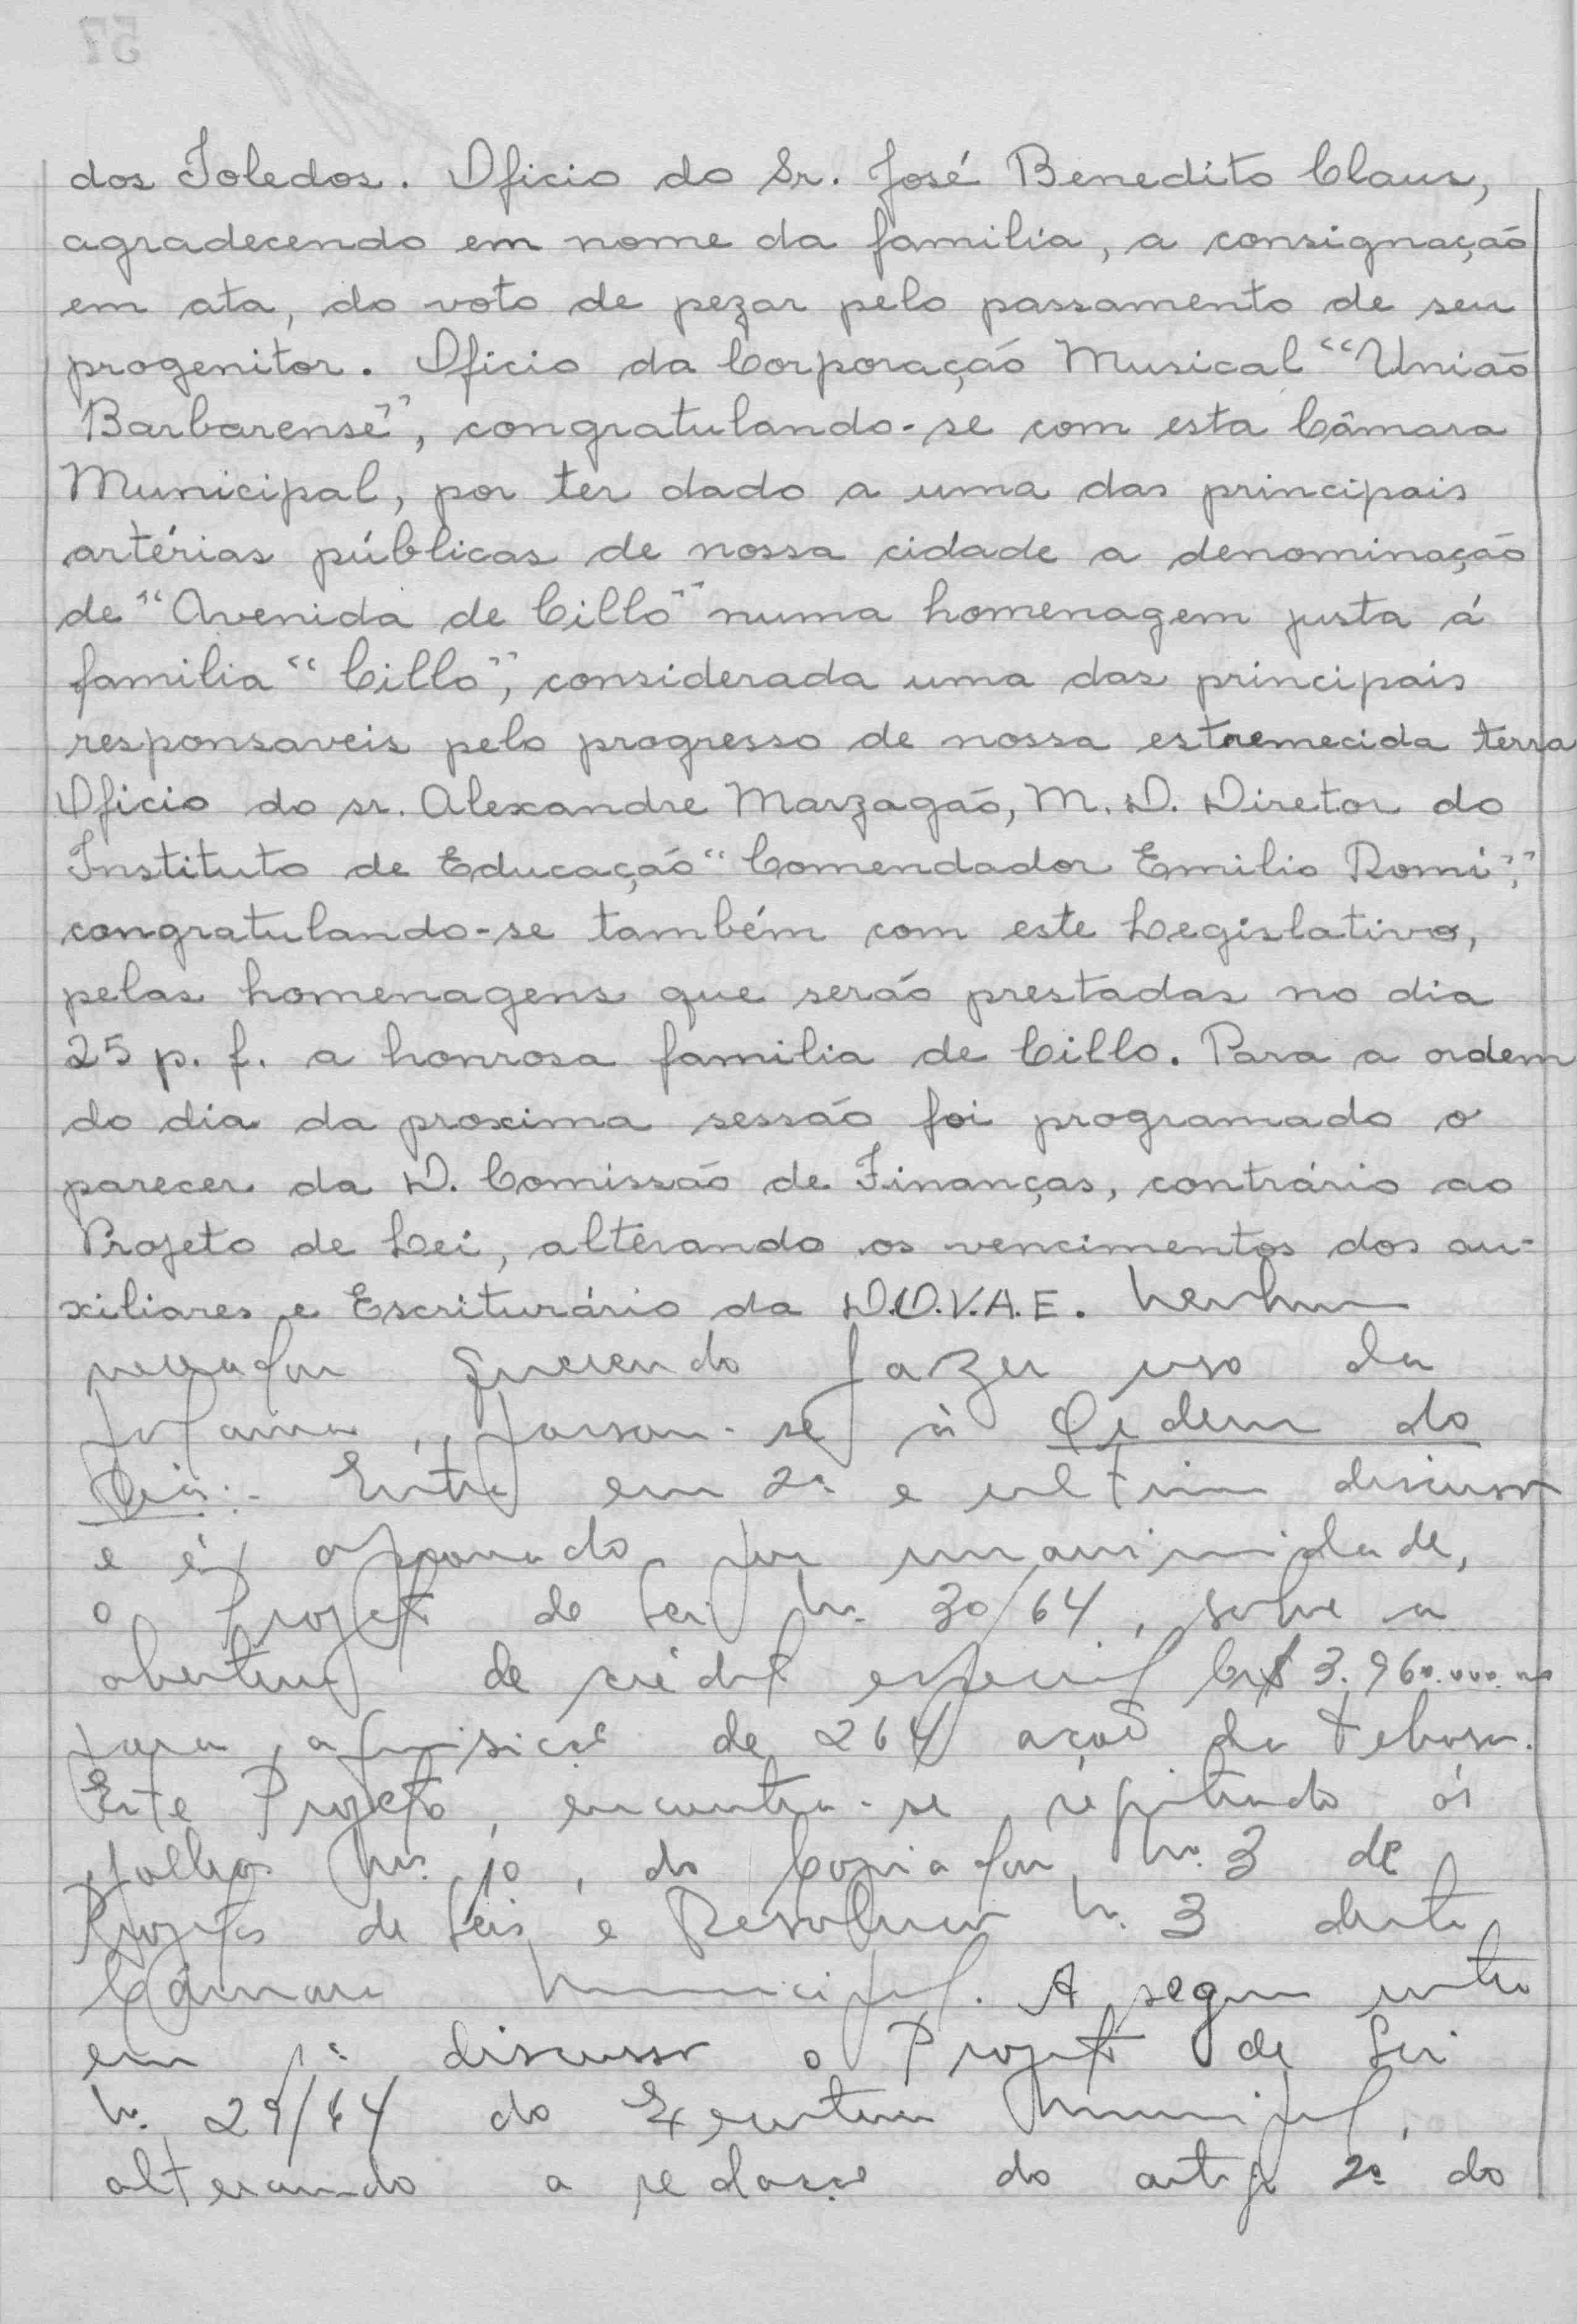 dos Toledos. Oficio do Sr. José Benedito Claus,
agradecendo em nome da familia, a consignação
em ata, do voto de pezar pelo passamento de seu
progenitor. Oficio da Corporação Musical "União
Barbarense", congratulando-se com esta Câmara
Municipal, por ter dado a uma das principais
artérias públicas de nossa cidade a denominação
de "Avenida de Cillo" numa homenagem justa á
familia "Cillo", considerada uma das principais
responsaveis pelo progresso de nossa estremecida terra
Oficio do sr. Alexandre Marzagão, M. D. Diretor do
Instituto de Educação "Comendador Emilio Romi",
congratulando-se também com este Legislativo,
pelas homenagens que serão prestadas no dia
25 p. f. a honrosa familia de Cillo. Para a ordem
do dia da proxima sessão foi programado o
parecer da D. Comissão de Finanças, contrário ao
Projeto de Lei, alterando os vencimentos dos au-
xiliares e Escriturário da D.O.V.A.E. Nenhum
vereador querendo fazer uso da
palavra, passou-se à Ordem do
Dia:- Entra em 2ª e ultima discussão
e é aprovado por unanimidade,
o Projeto de Lei Nº 30/64, sobre a
abertura de crédito especial Cr$ 3.960.000,00
para aquisição de 264 ações da Tebasa.
Este Projeto, encontra-se registrado ás
folhas Nº 10, do Copiador Nº 3 de
Projetos de Leis e Resoluções Nº 3 desta
Câmara Municipal. A seguir entra
em 1ª discussão o Projeto de Lei
Nº 29/64 do Executivo Municipal,
alterando a redação do artigo 2º do